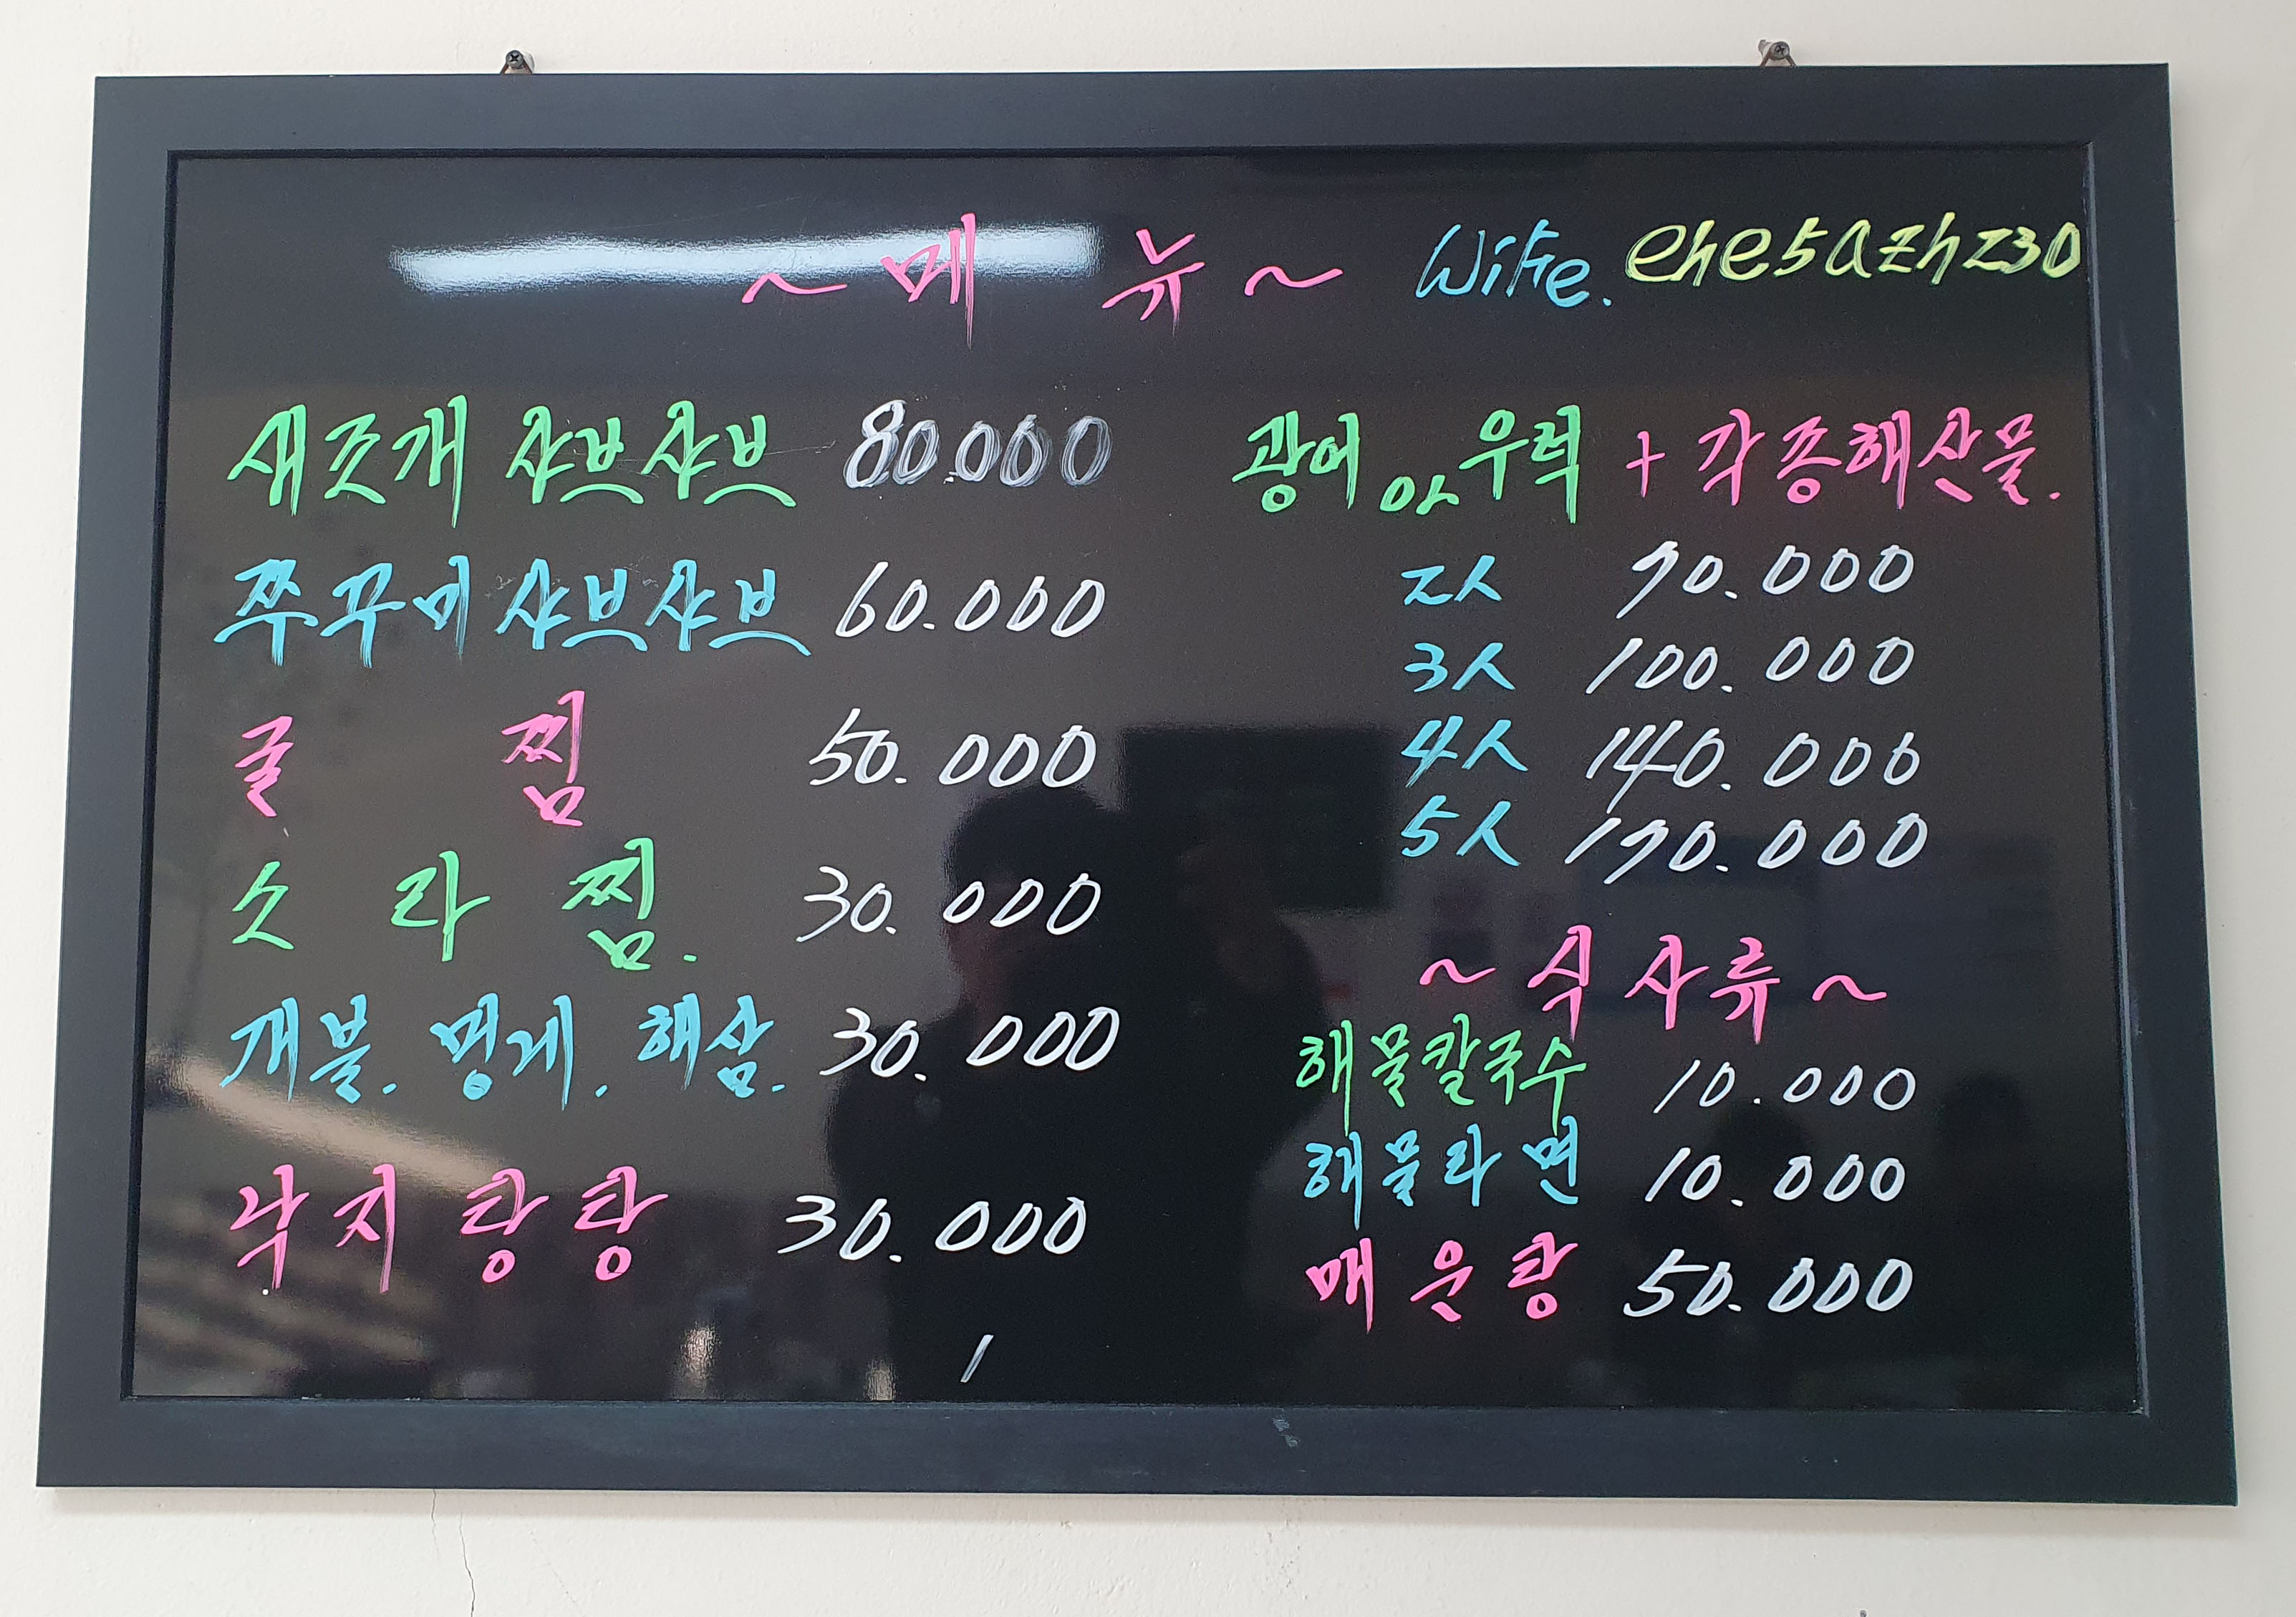 ~ 메 뉴 ~ Wife. ehe5azhz30
새조개 샤브샤브 80.000
쭈꾸미 샤브샤브 60.000
굴 찜 50.000
소 라 찜. 30.000
개불. 멍게. 해삼. 30.000
낙지 탕탕 30.000
광어 or 우럭 + 각종해산물.
2人 70.000
3人 100.000
4人 140.000
5人 170.000
~ 식 사 류 ~
해물칼국수 10.000
해물라면 10.000
매운탕 50.000